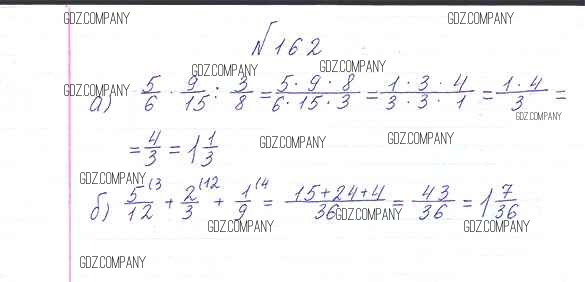 GDZ.COMPANY GDZ.COMPANY
№162
GDZ.COMPANY GDZ.COMPANY GDZ.COMPANY
а) 5/6 · 9/15 : 3/8 = 5·9·8/6·15·3 = 1·3·4/3·3·1 = 1·4/3 =
GDZ.COMPANY
= 4/3 = 1 1/3
GDZ.COMPANY GDZ.COMPANY
GDZ.COMPANY
б) 5/12 (3 + 2/3 (12 + 1/9 (4 = 15+24+4/36 = 43/36 = 1 7/36
GDZ.COMPANY GDZ.COMPANY GDZ.COMPANY
GDZ.COMPANY